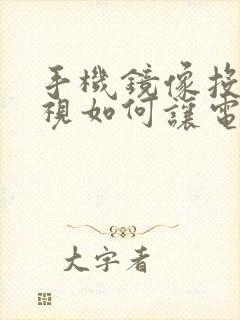 手機鏡像投
視如何讓電
大字者